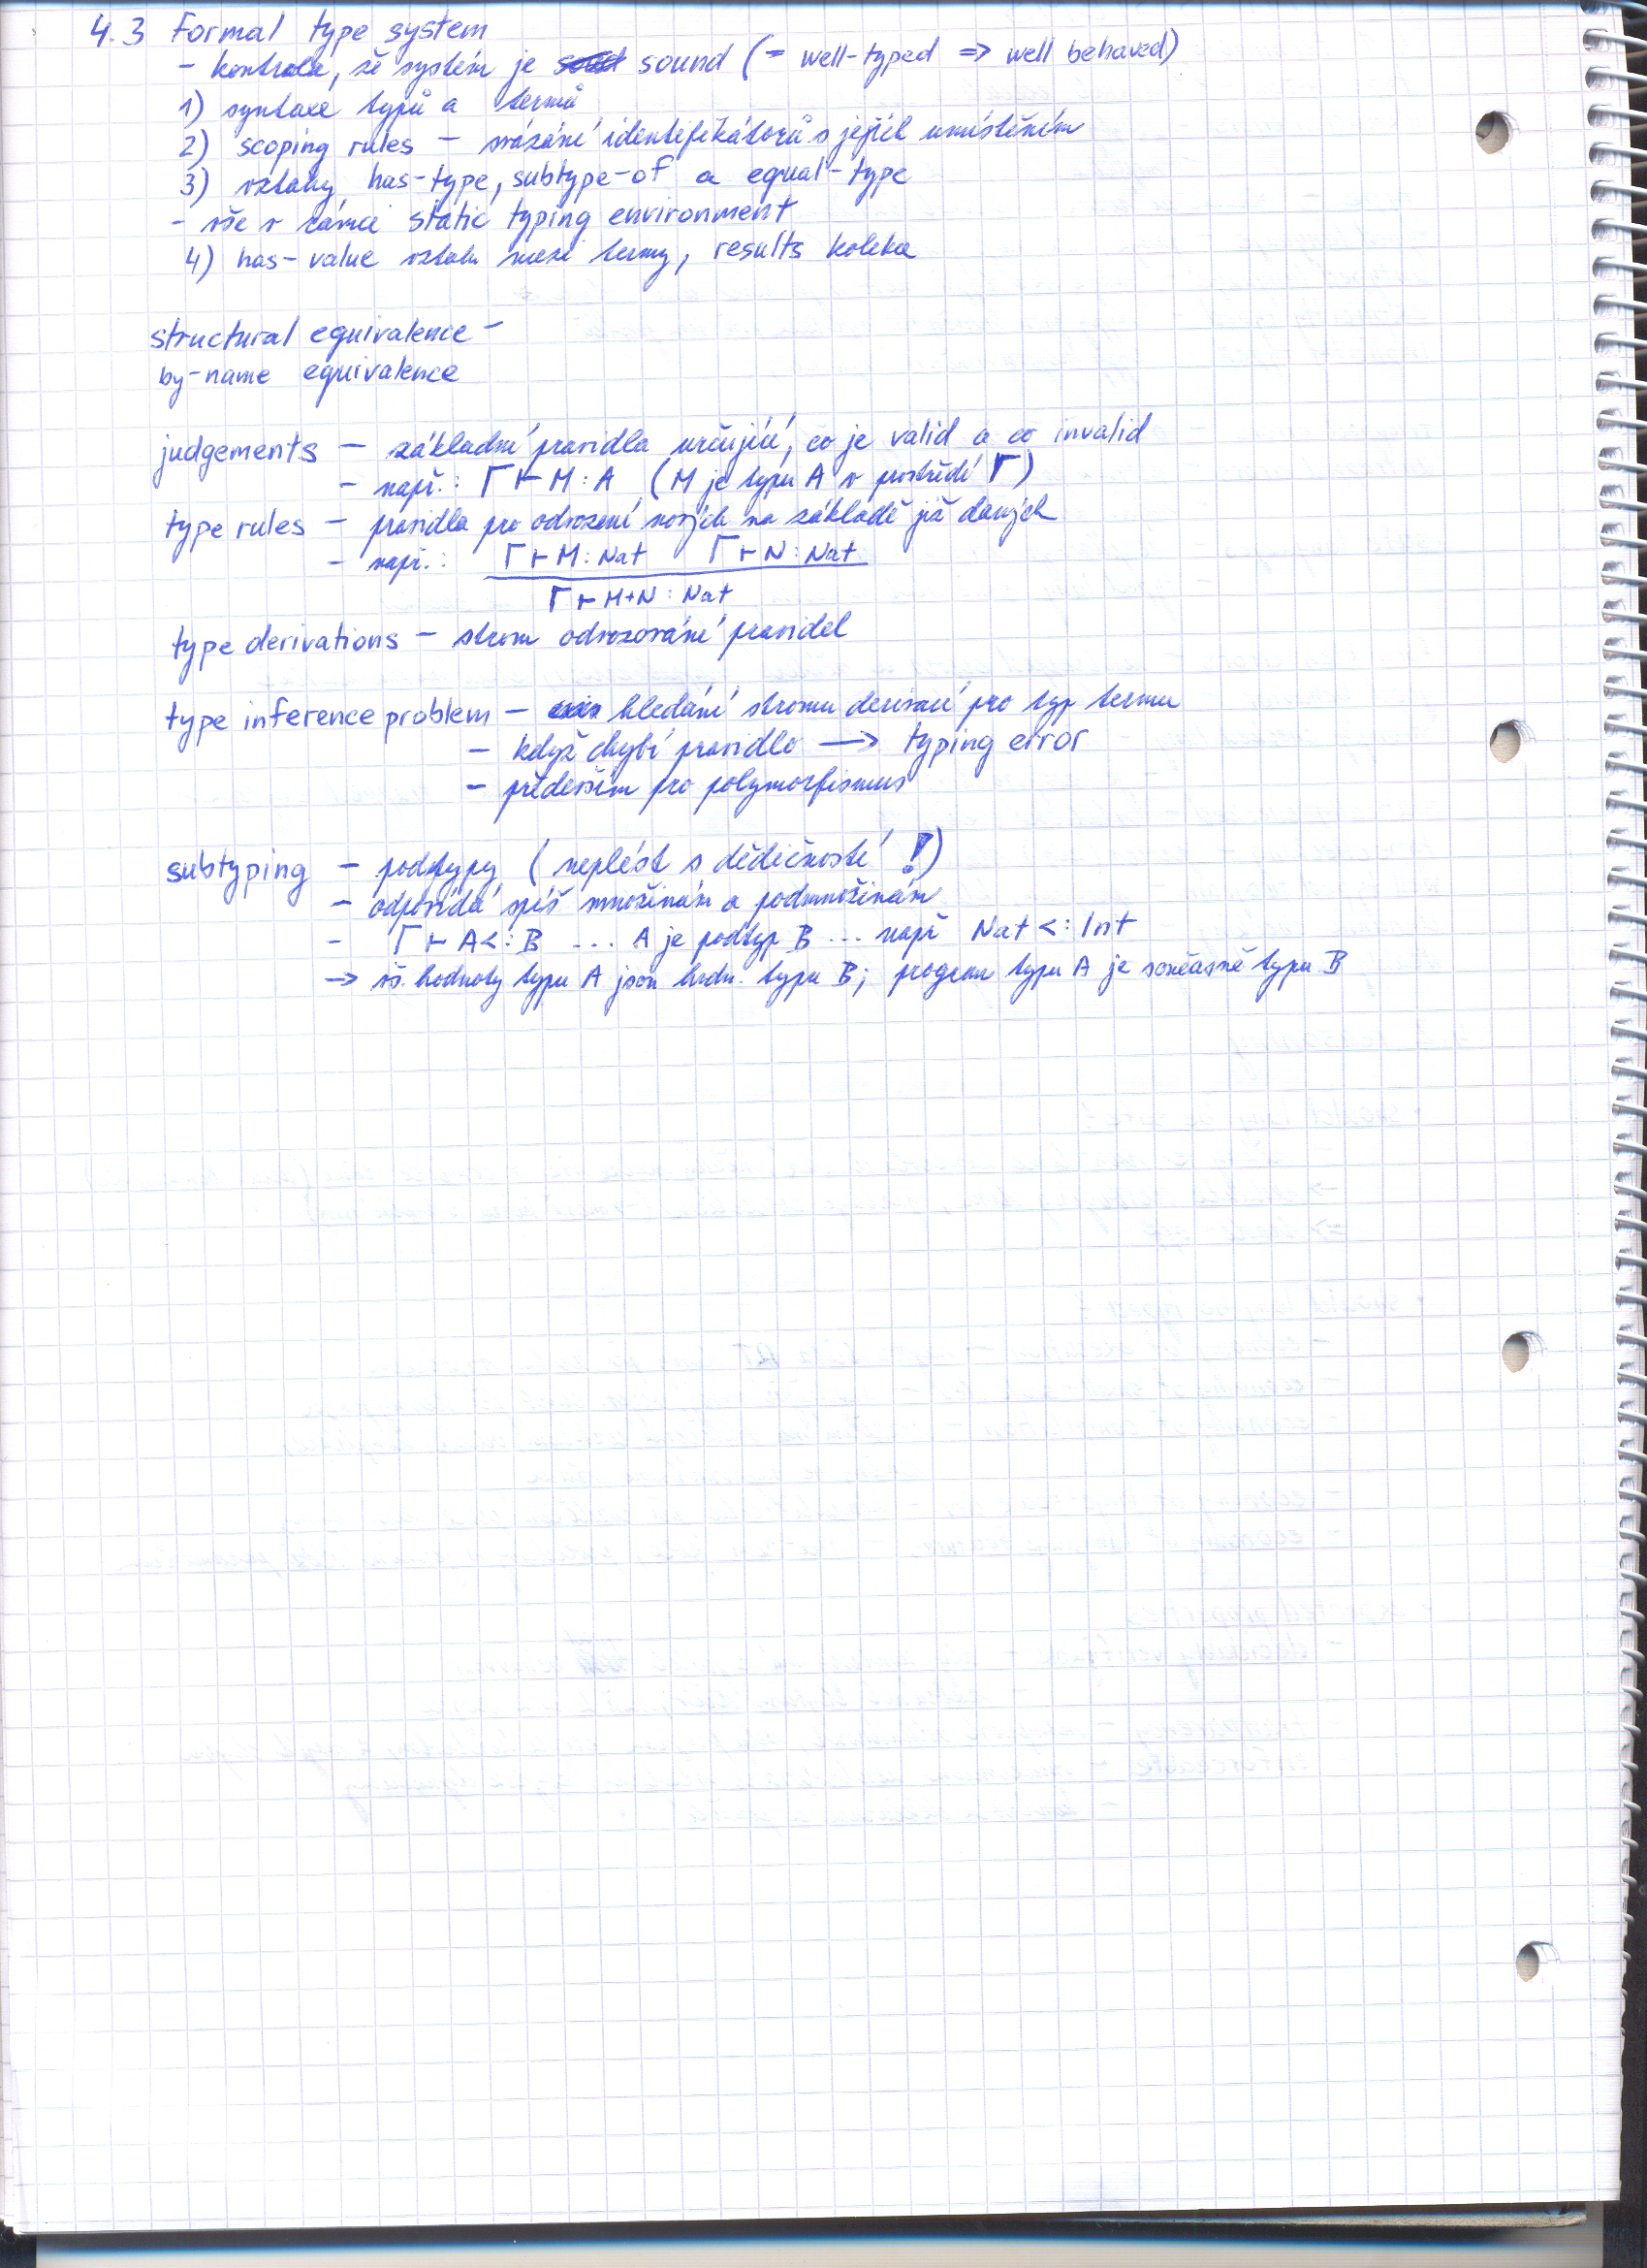 4.3 Formal type system
- kontrola, že systém je sound (= well-typed => well behaved)
1) syntaxe typů a termů
2) scoping rules - svázání identifikátorů s jejich umístěním
3) vztahy has-type, subtype-of a equal-type
- vše v rámci static typing environment
4) has-value vztah mezi termy, results kolekce
structural equivalence -
by-name equivalence
judgements - základní pravidla určující, co je valid a co invalid
- např.: Γ ⊢ M : A (M je typu A v prostředí Γ)
type rules - pravidla pro odvození nových na základě již daných
- např.: Γ ⊢ M : Nat Γ ⊢ N : Nat
Γ ⊢ M+N : Nat
type derivations - strom odvozování pravidel
type inference problem - hledání stromu derivací pro typ termu
- když chybí pravidlo -> typing error
- především pro polymorfismus
subtyping - podtypy (neplést s dědičností !)
- odpovídá spíš množinám a podmnožinám
- Γ ⊢ A <: B ... A je podtyp B ... např Nat <: Int
-> vš. hodnoty typu A jsou hodn. typu B; program typu A je současně typu B